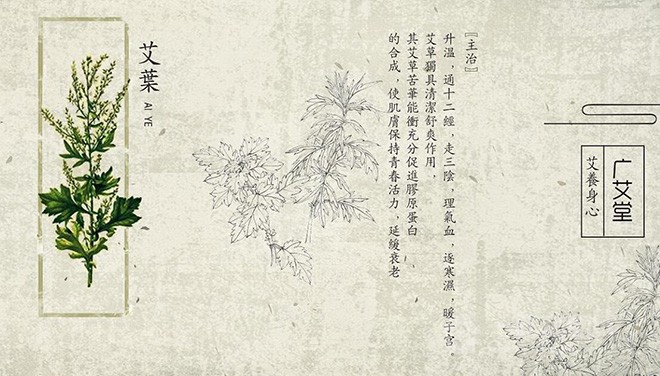 广艾堂
艾養身心
〖主治〗
升温，通十二經，走三陰，理氣血，逐寒濕，暖子宮。
艾草獨具清潔舒爽作用，
其艾草苦華能衝充分促進膠原蛋白
的合成，使肌膚保持青春活力，延緩衰老
艾葉
AI YE